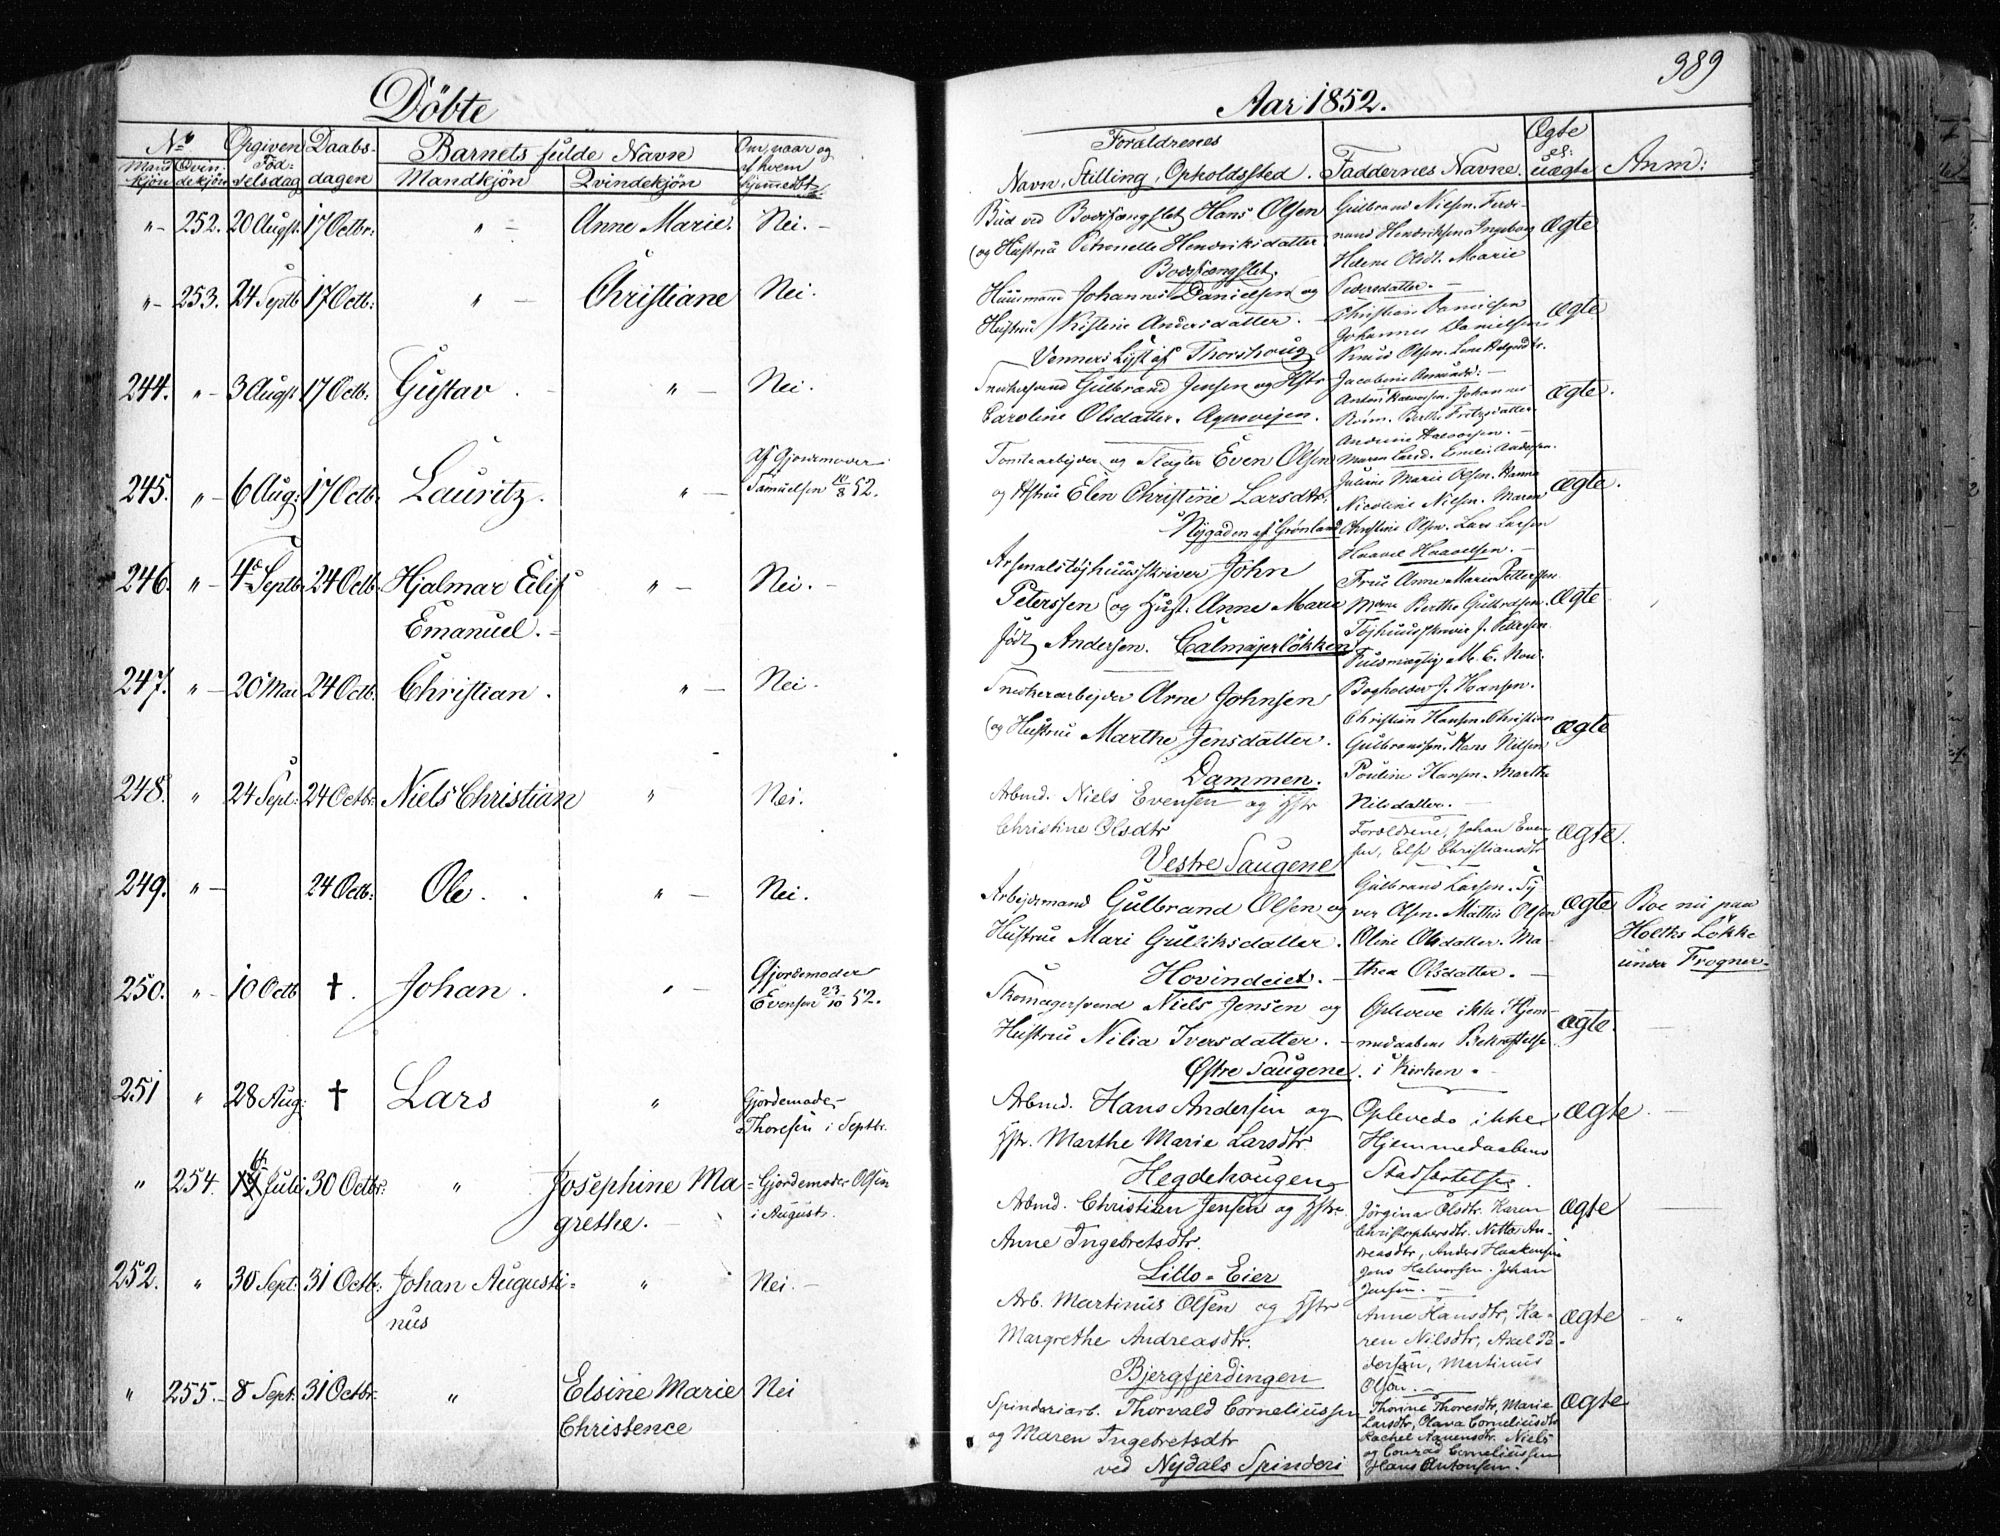 Döbte
No
Mand
kjön
Qvin-
dekjön
Opgiven
Föd-
selsdag
Daabs-
dagen
Barnets fulde Navn
Mandkjön
Qvindekjön
Om, naar og
af hvem
hjemmedöbt
"- 252. 20 Augst. 17 Octbr: " - Anne Marie. Nei. -
"- 253. 24 Septb 17 Octb: " - Christiane Nei.
244. "- 3 Augst 17 Octb: Gustav. " - Nei.
245. "- 6 Aug: 17 Octb. Lauritz. " - Af Gjordemoder
Samuelsen 10/8 52.
246. "- 4 Septb. 24 Octb. Hjalmar Eilif " - Nei. -
Emanuel. -
247. "- 20 Mai 24 Octb. Christian. " - Nei.
248. " 24 Sept: 24 Octb: Niels Christian " Nei.
249. "- 24 Octb: Ole. " - Nei.
250. "- 10 Octb † . Johan. " - Gjordemoder
Evensen 23/10 52.
251 " 28 Aug: † Lars " Gjordemoder
Thoresen i Septbr.
" 254. Juli 30 Octbr: " Josephine Ma- Gjordemoder Olsen
grethe. i August.
252. " 30 Sept: 31 Octb: Johan Augusti- " Nei.
nus
" 255. - 8 Sept: 31 Octbr: " Elsine Marie Nei
Christence
389
Aar 1852.
Forældrenes
Navn, Stilling, Opholdssted.
Faddernes Navne.
Ægte
el:
uægte
Anm:
Bud ved Bodsfængslet Hans Olsen
og Hustrue Petronelle Henriksdatter
Bodsfængslet.
Gulbrand Nielsen. Ferdi-
nand Hendriksen. Ingeborg
Helene Olsdt. Marie
Pedersdatter. -
Ægte
Huusmand Johannes Danielsen og
Hustrue Kistine Andersdatter. -
Venners Lyst af Thorshoug
Christian Danielsen
Johannes Danielsen
Knud Olsen. Lene
Ægte
Snedkersvend Gulbrand Jensen og Hstr
Caroline Olsdatter. Agersveien.
Johannes
Berthe Fritzsdatter.
Andrine Halvorsen. -
Ægte.
Tomtearbejder og Slagter Even Olsen
og Hstrue Elen Christine Larsdtr.
Nygaden af Grønland
Emilie Andersen.
Juliane Marie Olsen. Hanna
Nicoline Nielsen. Maren
Christine Olsen. Lars Larsen
Haavel Haavelsen. -
Ægte.
Arsenalstøihuusskriver John
Peterssen og Hust. Anne Marie
født Andersen. Calmeijerløkken
Frue Anne Marie Petterssen
Berthe Gulbrdsen.
Tøjhuusskriver J. Petersen
Fuldmægtig M. E.
Bogholder J. Hansen.
Ægte
Snedkerarbejder Arne Johnsen
og Hustrue Marthe Jensdatter.
Dammen.
Christian Hansen. Christian
Gulbrandsen. Hans Nilsen
Pouline Hansen. Marthe
Nilsdatter. -
Ægte
Arbmd. Niels Evensen og Hstr
Christine Olsdtr
Vestre Saugene
Forældrene, Johan Even-
sen, Else Christiansdtr
Ægte.
Arbejdsmand Gulbrand Olsen og
Hustrue Mari Gulliksdatter.
Hovindeiet. -
Gulbrand Larsen. Sy-
ver Olsen. Mathis Olsen
Oline Olsdatter. Ma-
thea Olsdatter. -
Ægte
Boe nu paa
Holtks Løkke
under Frogner-
Skomagersvend Niels Jensen og
Hustrue Nilia Iversdatter. -
Østre Saugene.
Oplevede ikke Hjem-
medaabens Bekræftelse
i Kirken. -
Ægte.
Arbmd. Hans Andersen og
Hstr. Marthe Marie Larsdtr.
Hegdehougen
Oplevede ikke
Hjemmedaabens
Stadfæstelse.
Ægte
Arbmd. Christian Jensen og Hstr.
Anne Ingebretsdtr.
Lillo-Eier
Jørgine Olsdtr. Karen
Christophersdtr. Nitta An-
dreasdtr, Anders Haakensen
Jens Halvorsen. Johan
Jensen. -
Ægte
Arb. Martinus Olsen og Hstr
Margrethe Andreasdtr.
Bjergfjerdingen
Anne Hansdtr, Ka-
ren Nilsdtr, Axel Pe-
dersen, Martinus
Olsen. -
Ægte
Spinderiarb. Thorvald Corneliussen
og Maren Ingebretsdtr
ved Nydals Spinderi
Thorine Thoresdtr, Marie
Larsdtr, Olava Corneliusdtr
Rachel Niels
og Conrad Corneliussen
Hans Antonsen.
Ægte